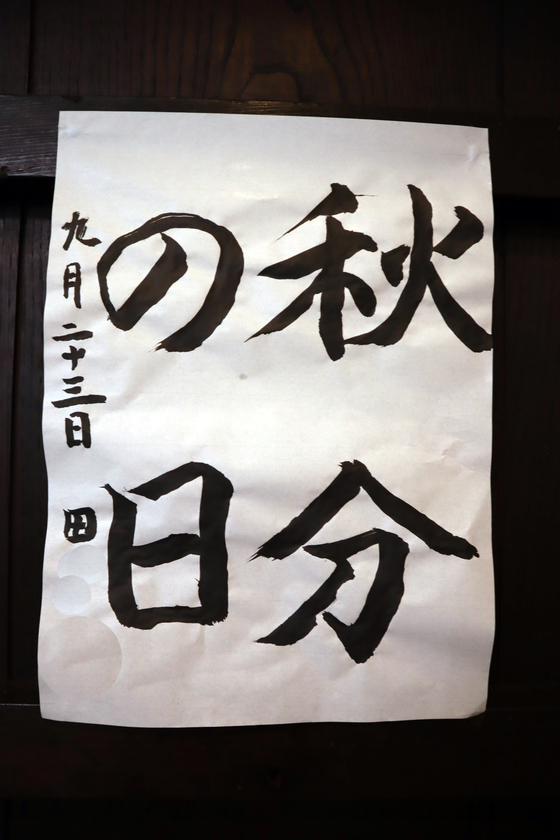 秋分
の日
九月二十三日 田